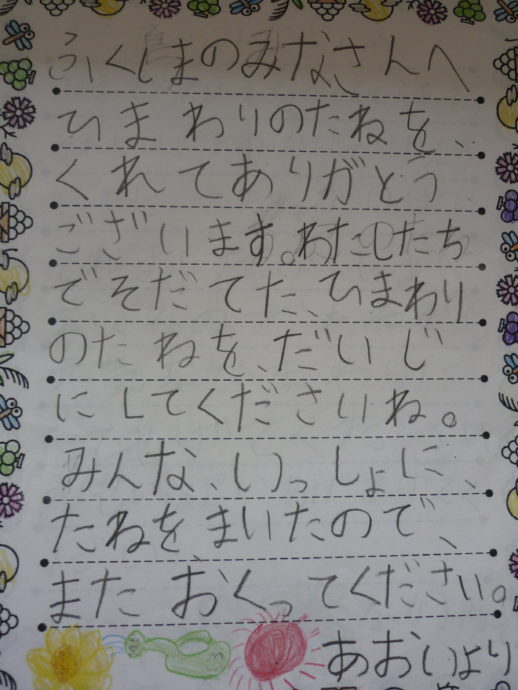 ふくしまのみなさんへ
ひまわりのたねを、
くれてありがとう
ございます。わたしたち
でそだてた、ひまわり
のたねを、だいじ
にしてくださいね。
みんな、いっしょに、
たねを、まいたので、
また おくってください。
あおいより